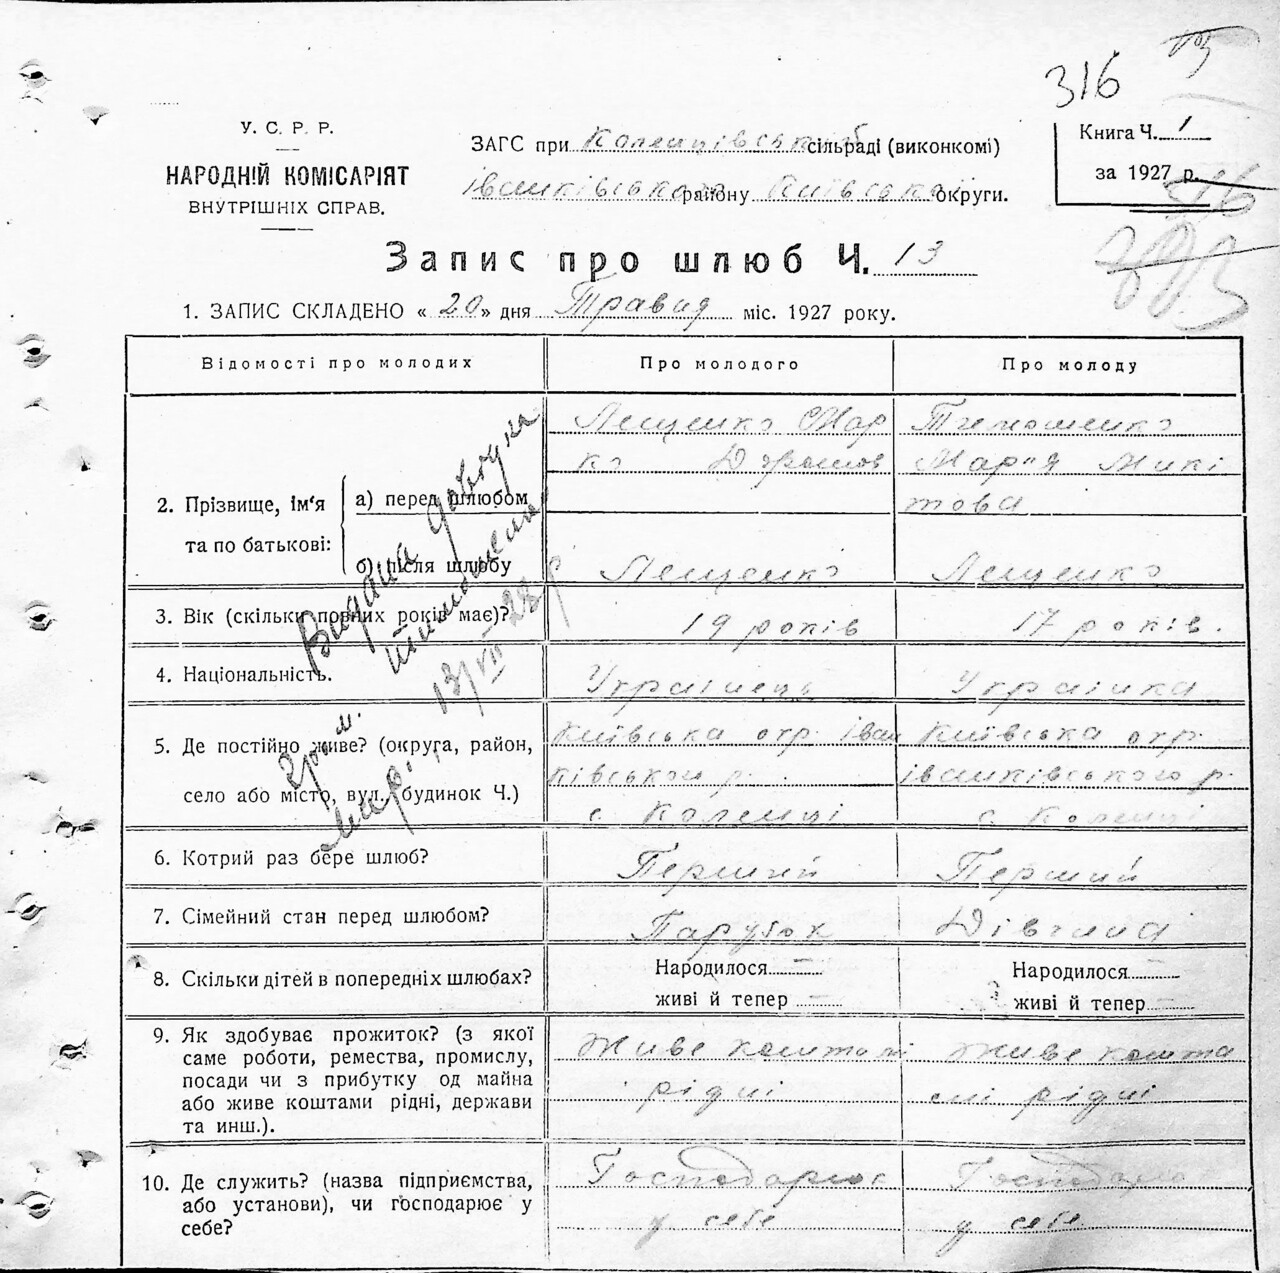 316
У. С. Р. Р.
НАРОДНІЙ КОМІСАРІЯТ
ВНУТРІШНІХ СПРАВ.
ЗАГС при Коленцівській сільраді (виконкомі)
іванківського району Київської округи.
Книга Ч. 1
за 1927 р.
Запис про шлюб Ч. 13
1. ЗАПИС СКЛАДЕНО « 20 » дня Травня міс. 1927 року.
Відомості про молодих
Про молодого
Про молоду
2. Прізвище, ім'я
та по батькові:
а) перед шлюбом
б) після шлюбу
Лещенко Мар
ко
Тимошенко
Мар'я Микі
това
Лещенко
Лещенко
3. Вік (скільки повних років має)?
19 років
17 років.
4. Національність.
Українець
Українка
5. Де постійно живе? (округа, район,
село або місто, вул., будинок Ч.)
Київська окр. іван
ківського р.
с. Коленці
Київська окр.
іванківського р.
с. Коленці
6. Котрий раз бере шлюб?
Перший
Перший
7. Сімейний стан перед шлюбом?
Парубок
Дівчина
8. Скільки дітей в попередніх шлюбах?
Народилося –
живі й тепер –
Народилося –
живі й тепер –
9. Як здобуває прожиток? (з якої
саме роботи, ремества, промислу,
посади чи з прибутку од майна
або живе коштами рідні, держави
та инш.).
Живе коштами
рідні
Живе кошта
ми рідні
10. Де служить? (назва підприємства,
або установи), чи господарює у
себе?
Господарює
у себе
Господарює
у себе
Видана довідка
13/VII 28 р